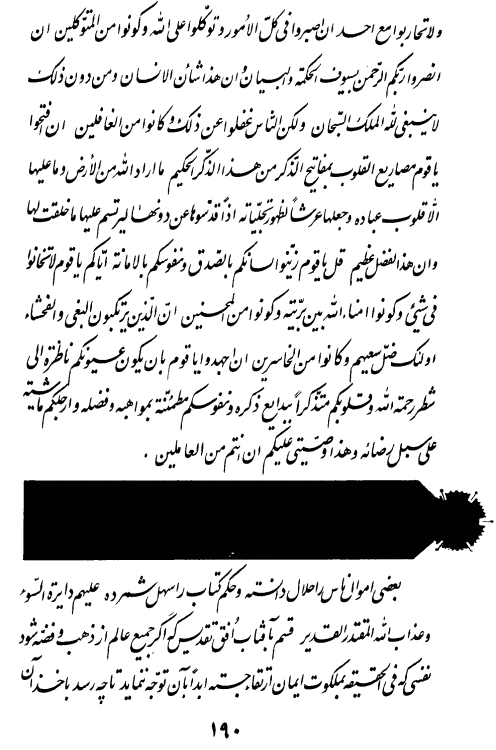 ولا تحاربوا مع احد ان اصبروا فی کلّ الأمور و توکّلوا علی اللّه وکونوا من المتوکّلین ان
انصروا ربّکم الرّحمن بسیوف الحکمة والبیان وان هذا شأن الانسان ومن دون ذلک
لا ینبغی للّه الملک السّبحان ولکنّ النّاس غفلوا عن ذلک وکانوا من الغافلین ان افتحوا
یا قوم مصاریع القلوب بمفاتیح الذّکر من هذا الذّکر الحکیم ما اراد اللّه من الأرض وما علیها
الّا قلوب عباده وجعلها عرشاً لظهور تجلّیاته اذاً قدّسوها عن دونها لیرتسم علیها ما خلقت لها
وان هذا لفضل عظیم قل یا قوم زیّنوا لسانکم بالصّدق ونفوسکم بالامانة ایّاکم یا قوم لا تخانوا
فی شیئی وکونوا امناء اللّه بین بریّته وکونوا من المحسنین انّ الّذین یرتکبون البغی والفحشاء
اولئک ضلّ سعیهم وکانوا من الخاسرین ان اجهدوا یا قوم بان یکون عیونکم ناظرة الی
شطر رحمة اللّه وقلوبکم متذکّراً ببدایع ذکره ونفوسکم مطمئنّة بمواهبه وفضله وارجلکم ماشیته
علی سبل رضائه وهذا وصیّتی علیکم ان انتم من العاملین .
بعضی اموال ناس را حلال دانسته و حکم کتاب را سهل شمرده علیهم دایرة السّوء
وعذاب اللّه المقتدر القدیر قسم بآفتاب افق تقدیس که اگر جمیع عالم از ذهب و فضّه شود
نفسی که فی الحقیقه بملکوت ایمان ارتقاء جسته ابداً بآن توجّه ننماید تا چه رسد باخذ آن
۱۹۰